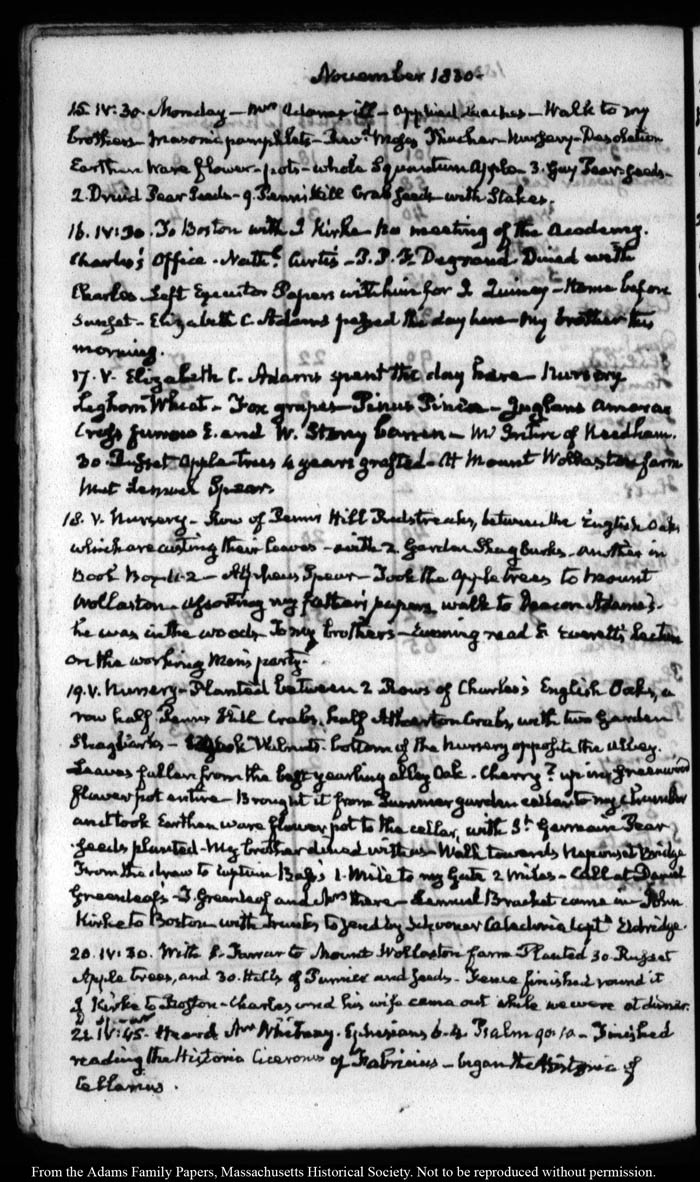 November 1830.
15. IV:30. Monday — Mrs Adams ill — applied Leaches — Walk to my
brothers — Masonic pamphlets — Revd. Moses Thacher — Nursery — Desolation
Earthen Ware flower-pots — whole Squantum Apple 3. Guy Pear-seeds —
2 Druid Pear seeds — 9. Penns Hill Crab seeds — with Stakes.
16. IV:30. To Boston with J Kirke — no meeting of the Academy.
Charles's Office — Nathl. Curtis — P. P. F. Degrand Dined with
Charles — Left Executor Papers with him for J. Quincy — Home before
Sunset — Elizabeth C. Adams passed the day here — My brother this
morning.
17. V. Elizabeth C. Adams spent the day here — Nursery
Leghorn Wheat — Fox grapes — Pinus Pinea — Juglans amara
Cross furrow E. and W. Stony barren — Mr of Needham.
30. Russet Apple-trees 4 years grafted — At Mount Wollaston farm
Met Lemuel Spear.
18. V. Nursery — Row of Penns Hill Redstreaks, between the English Oaks
which are casting their leaves — with 2 Garden Shagbarks — another in
Book Box 11-2 — Alpheus Spear — Took the Apple trees to Mount
Wollaston — assorting my father's papers, walk to Deacon Adams's —
he was in the woods — To my brothers — Evening read E Everett's Lecture
on the working Men's party.
19. V. Nursery — Planted between 2 Rows of Charles's English Oaks, a
row half Penns Hill Crabs, half Atherton Crabs, with two Garden
Shagbarks — Walnuts — bottom of the Nursery opposite the alley.
Leaves fallen from the best yearling alley Oak — Cherry? up in greenwood
flower pot entire — Brought it from Summer garden cellar to my chamber
and took Earthen ware flower pot to the cellar, with St. Germain Pear
seeds planted — My brother dined with us — Walk towards Neponset Bridge
From the draw to Captain Bass's 1. Mile to my Gate 2 Miles — Call at Daniel
Greenleaf's — T. Greenleaf and Mrs there — Lemuel Bracket came in — John
Kirke to Boston with Trunks to send by Schooner Caledonia Captn. Eldridge.
20. IV:30. With E. Farrar to Mount Wollaston farm — Planted 30 Russet
Apple trees, and 30 Hills of Pumice and seeds — Fence finished round it
J Kirke to Boston — Charles and his wife came out while we were at dinner.
21. IV:45. Heard Mr Whitney. Ephesians 6.4 Psalm 90.10 — Finished
reading the Historia Ciceronis of Fabricius — began the Historia of
Cellarius.